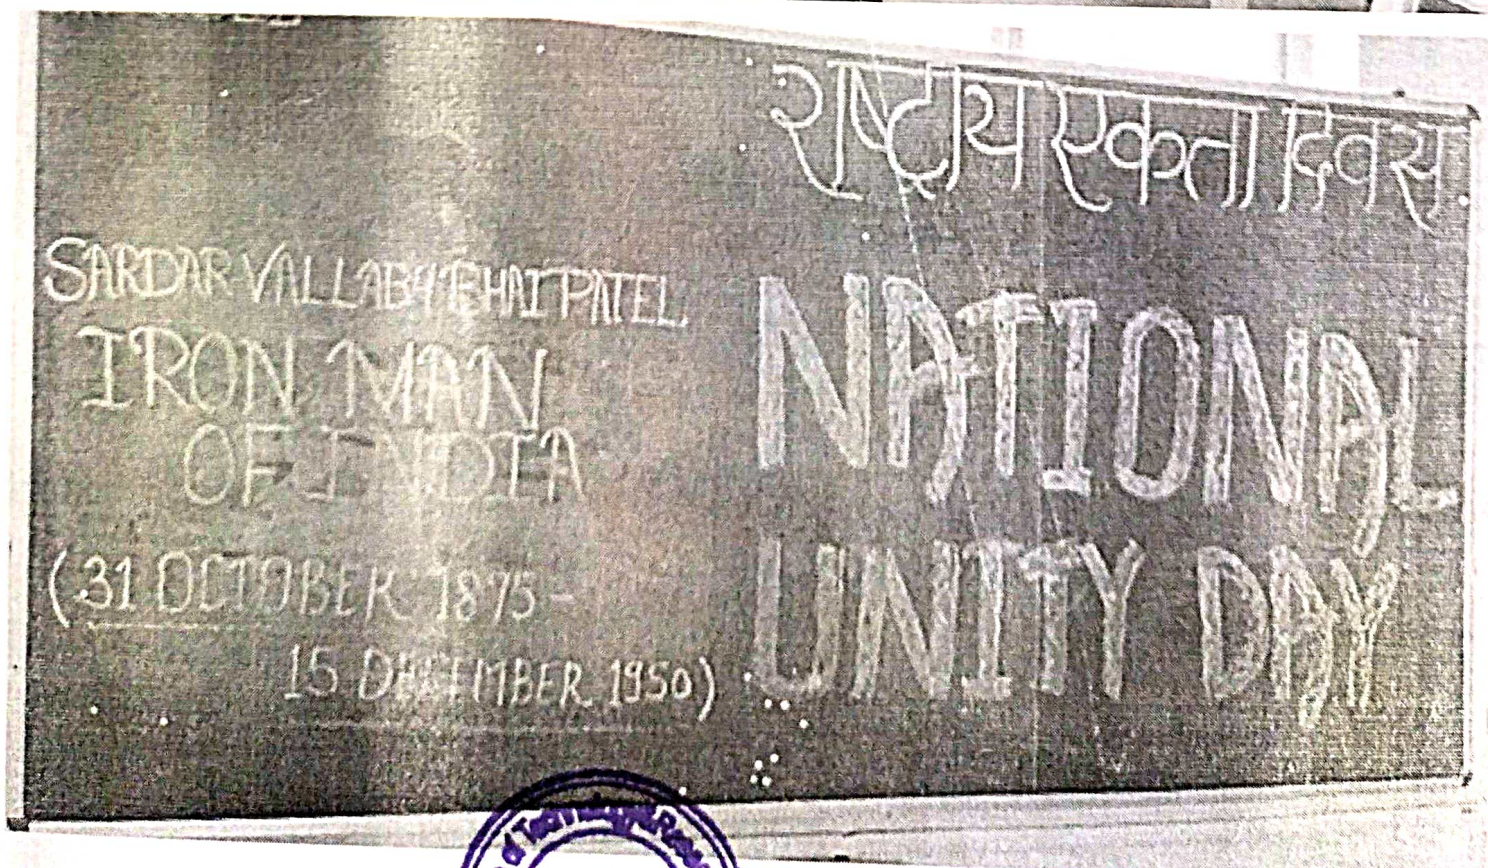 राष्ट्रीय एकता दिवस
SARDAR VALLABHBHAI PATEL.
IRON MAN
OF INDIA
(31 OCTOBER 1875-
15 DECEMBER 1950)
NATIONAL
UNITY DAY